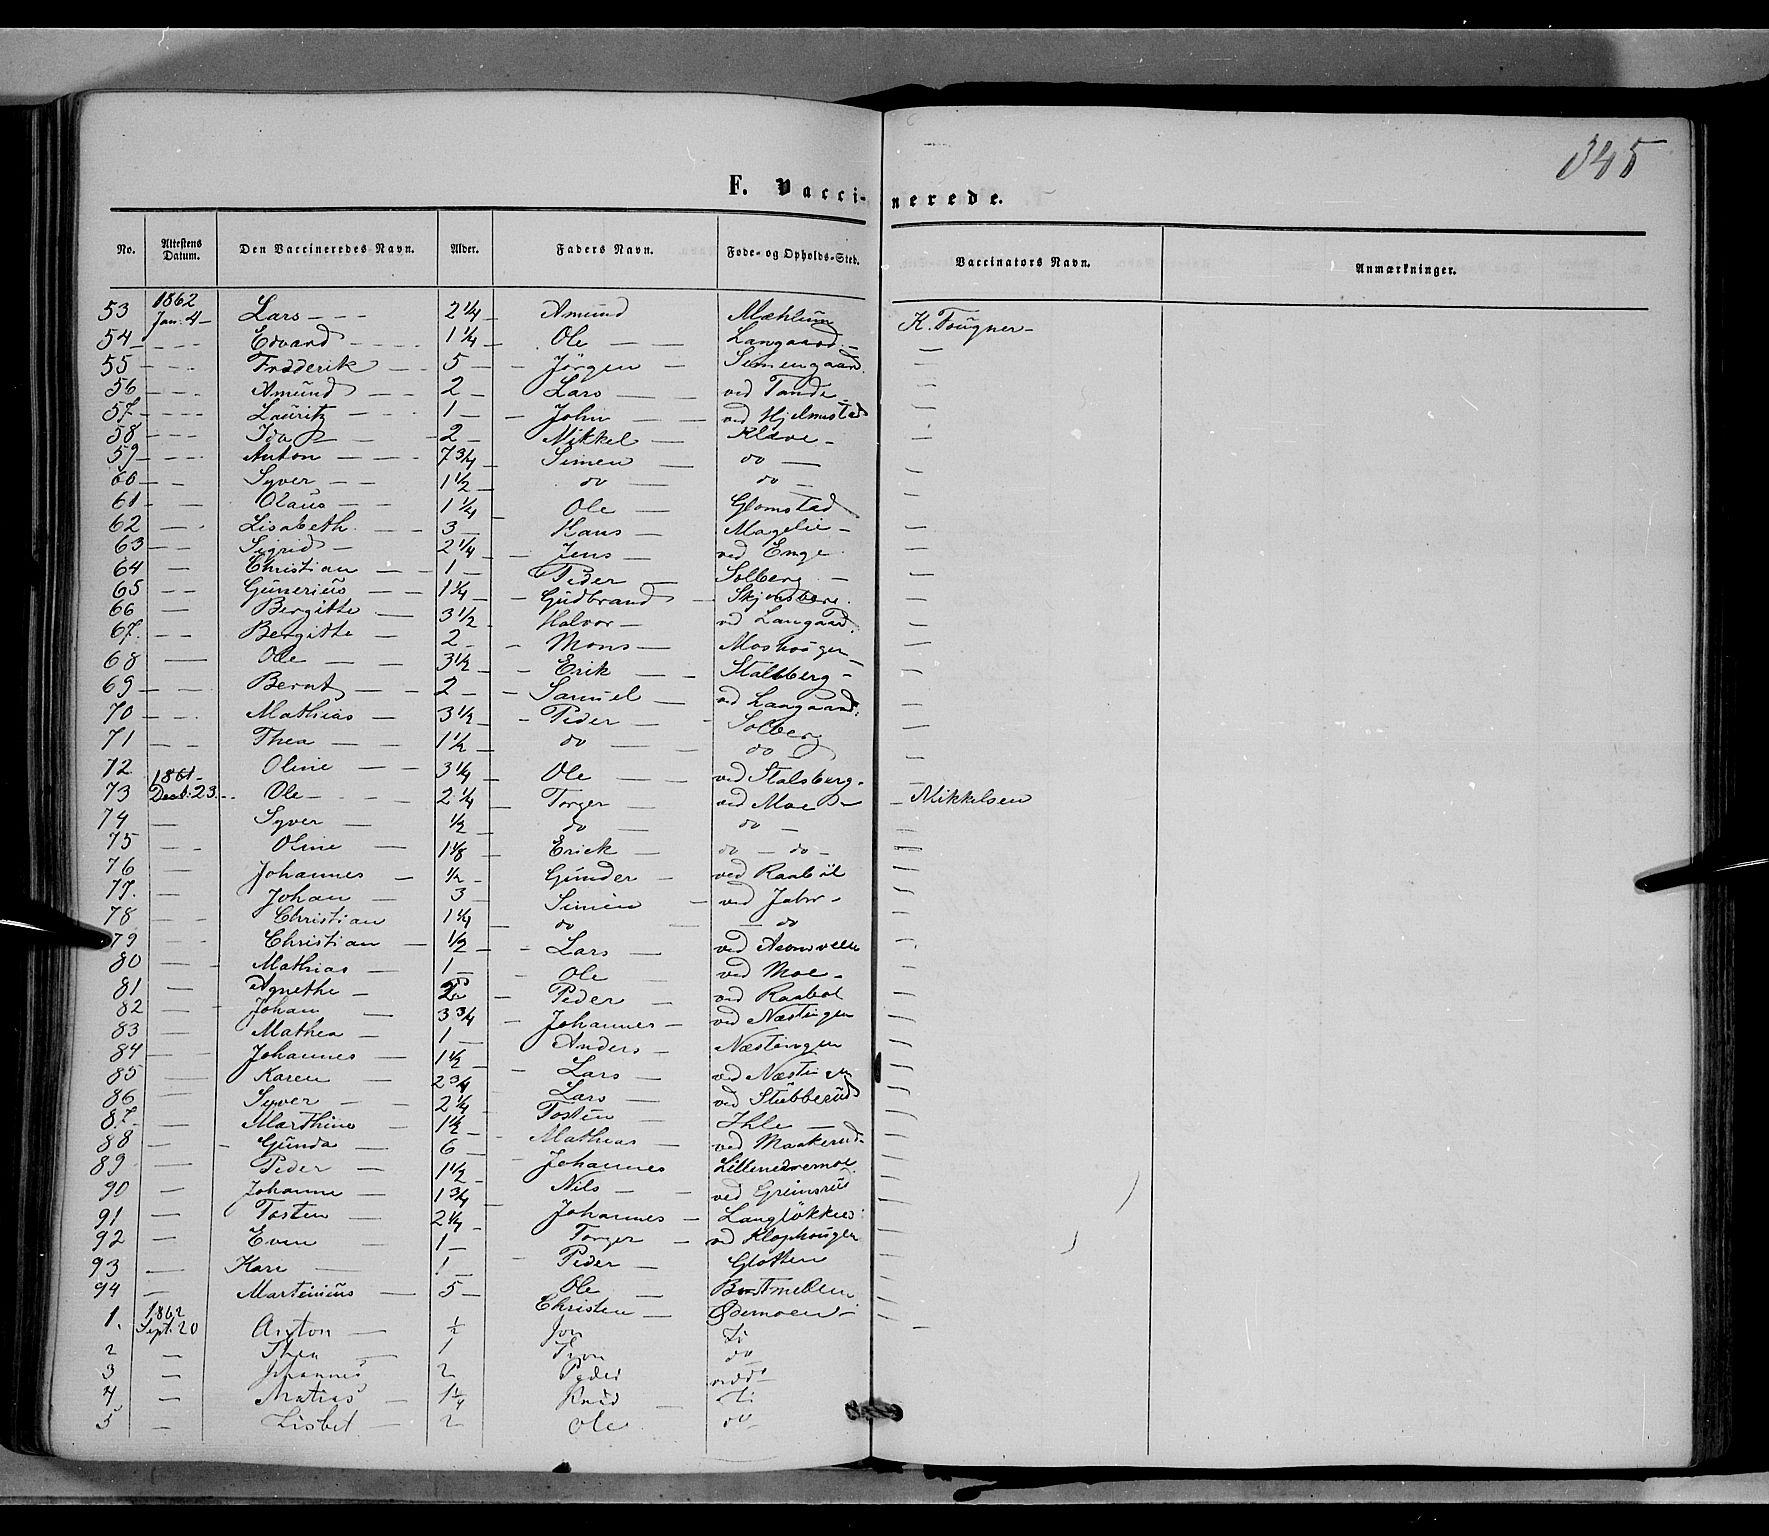 345
F. Vaccinerede.
No. Attestens Datum. Den Vaccineredes Navn. Alder. Faders Navn. Føde- og Opholds-Sted. Vaccinators Navn. Anmærkninger.
53 1862 Jan. 4 - Lars - - - 2 1/4 Amund Mæhlum K. Tougner -
54 - - - Edvard - - - 1 1/4 - Ole - - Langaard. - -
55 - - - Fredderik - - 5 - - Jörgen - Simengaard. -
56 - - - Amund 2 - Lars - ved Tande - -
57 - - - Lauritz - - - 1 - - John - - ved Hjelmstad -
58 - - - Ida - 2 - Mikkel - Kleve - -
59 - - Anton - - - 7 3/4 - Simen - do - -
60 - - Syver - - 1 1/2 - do - do - -
61 - - Olaus - - 1 1/4 - Ole - Glomstad -
62 - - Lisabeth. - - 3 - Hans - Magelie - -
63 - - Sigrid - 2 1/4 - - Jens - ved Enge. -
64 - Christian - - 1 - Peder - Solberg. - -
65 - - Gunerius - 1 1/4 - - Gudbrand - Skjønsberg. -
66 - Bergitte - 3 1/2 - Halvor - vd Langaard. -
67. - - Bergitte - 2 - - Mons - Moshougen - -
68 - Ole - - 3 1/2 - - Erik - - Stalsberg - -
69 - - Bernt - - 2 - - Samuel - vd Langaard: -
70 - - - Mathias - 3 1/2 - - Peder - - Solberg -
71 - - Thea - - 1 1/2 - do - - do -
72 Oline - - 3 1/4 - Ole - - ved Stalsberg. -
73 1861 - Decb. 23. - Ole - - 2 1/4 - Torger - ved Moe - - Mikkelsen
74 - Syver - 1/2 - do - do - -
75 - - Oline - 1 1/8 - Erick - do - do - -
76 - Johannes - 1/2 - Gunder - ved Raabøl -
77. - Johan - 3 - Simen - ved Jahr - -
78 - - Christian 1 1/4 - do - do -
79 - - Christian - 1/2 - - Lars - ved -
80 - - Mathias - 1 - - Ole - ved Moe - -
81 - Agnethe - 2 - Peder - ved Raabøl -
82 - Johan - 3 3/4 - Johannes - ved Næstingen -
83 - Mathea - 1 - Anders - Næstingen -
84 - - Johannes - 1 1/2 - - Lars - ved -
85 - Karen - 2 3/4 Lars - ved Stubberud -
86 - Syver - - 2 1/4 - Tosten - Ihle - -
87. - - Marthine - 1 1/2 - Mathias - ved Maakerud - -
88 - - Gunda - 6 - - Johannes Lillenedremoe -
89 - Peder - 1 1/2 - Nils - - ved Grimsrud -
90 - Johanne - 1 3/4 - Johannes - Langløkken: -
91 - Tosten - 2 1/4 - Torger - vd Klophougen -
92 - Even - 1 - - Peder - Glotten -
93 - Kari - 1 - Ole - -
94 - Martinius - 5 - Christen - Ødemoen - -
1. 1862 Sept. 20 Anton - 1/2 Jon -
2 - Thea - 1 do
3 - Johannes 2 Peder
4 - Matias - 1 1/4 Knud -
5 - Lisbet - 2 Ole do -